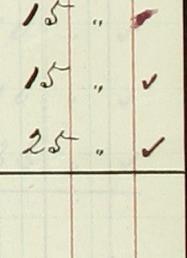 15 " 
15 " ✓
25 " ✓